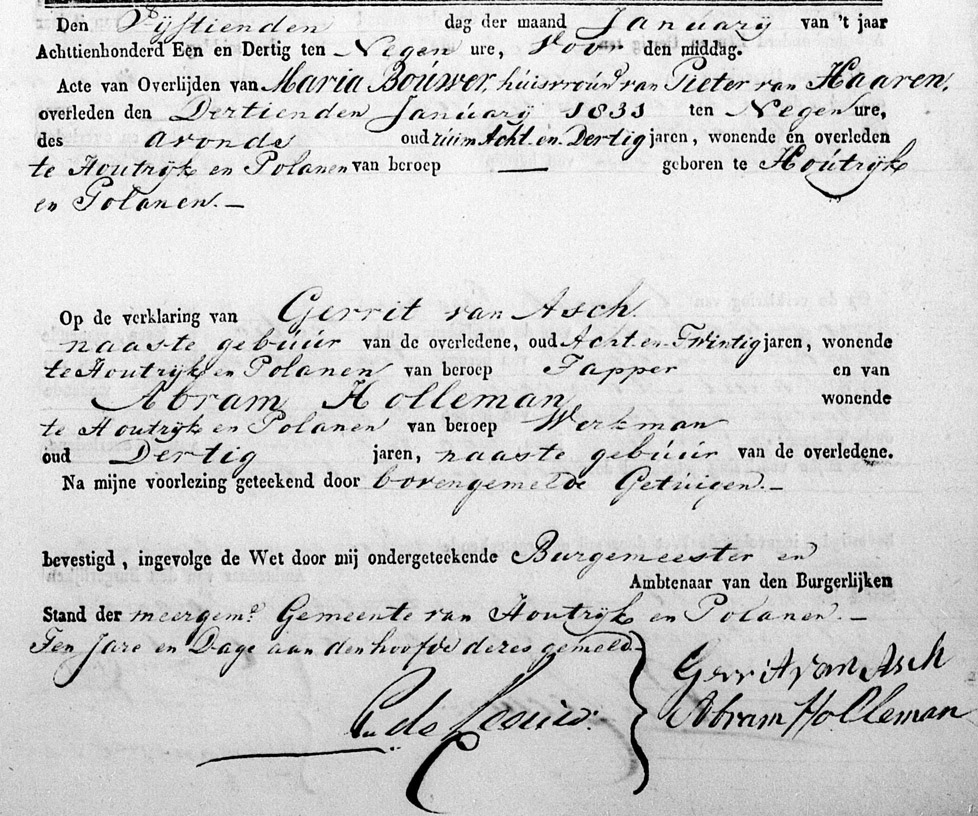 Den Vijftienden dag der maand Januarij van 't jaar
Achttienhonderd Een en Dertig ten Negen ure, Voor den middag.
Acte van Overlijden van Maria Bouwer, huisvrouw van Pieter van Haaren,
overleden den Dertienden Januarij 1831 ten Negen ure,
des Avonds oud ruim Acht en Dertig jaren, wonende en overleden
te Houtrijk en Polanen van beroep — geboren te Houtrijk
en Polanen. —
Op de verklaring van Gerrit van Asch
naaste gebúúr van de overledene, oud Acht en Twintig jaren, wonende
te Houtrijk en Polanen van beroep Tapper en van
Abram Holleman wonende
te Houtrijk en Polanen van beroep Werkman
oud Dertig jaren, naaste gebúúr van de overledene.
Na mijne voorlezing geteekend door bovengemelde Getuigen. —
bevestigd, ingevolge de Wet door mij ondergeteekende Burgemeester en
Ambtenaar van den Burgerlijken
Stand der meergem.e Gemeente van Houtrijk en Polanen. —
Ten Jare en Dage aan den hoofde dezes gemeld.
Gerrit van Asch
de Leeuw.
Abram Holleman